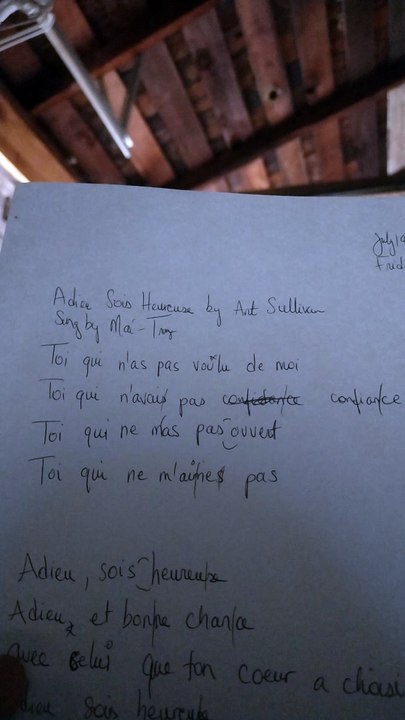 July 19
Frid
Adieu Sois Heureuse by Art Sullivan
Sung by Mai-
Toi qui n'as pas voulu de moi
Toi qui n'avais pas confiance
Toi qui ne m'as pas ouvert
Toi qui ne m'aimes pas
Adieu, sois heureuse
Adieu, et bonne chance
avec celui que ton coeur a choisi
sois heureuse